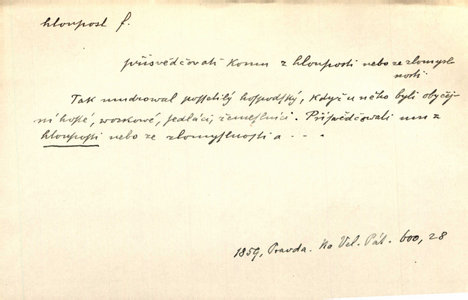 hloupost f.
přisvědčovati komu z hlouposti nebo ze zlomysl-
nosti
Tak mudroval pošetilý hospodský, když u něho byli obyčej-
ní hosté, sedláci, řemeslníci. Přisvědčovali mu z
hlouposti nebo ze zlomyslnosti a . . .
1859, Pravda. Ko Vel. Pát. 600, 28